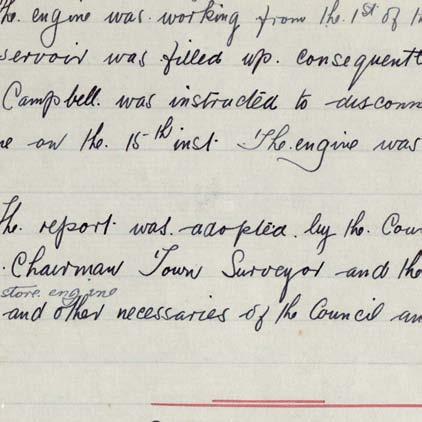 the. engine was. working from the. 1st of
servoir was filled up. consequent
Campbell. was instructed to disconn
on the. 15th inst. The. engine was
the. report. was. adopted. by the. Cou
. Chairman Town Surveyor and the
store. engine
and other necessaries of the Council an